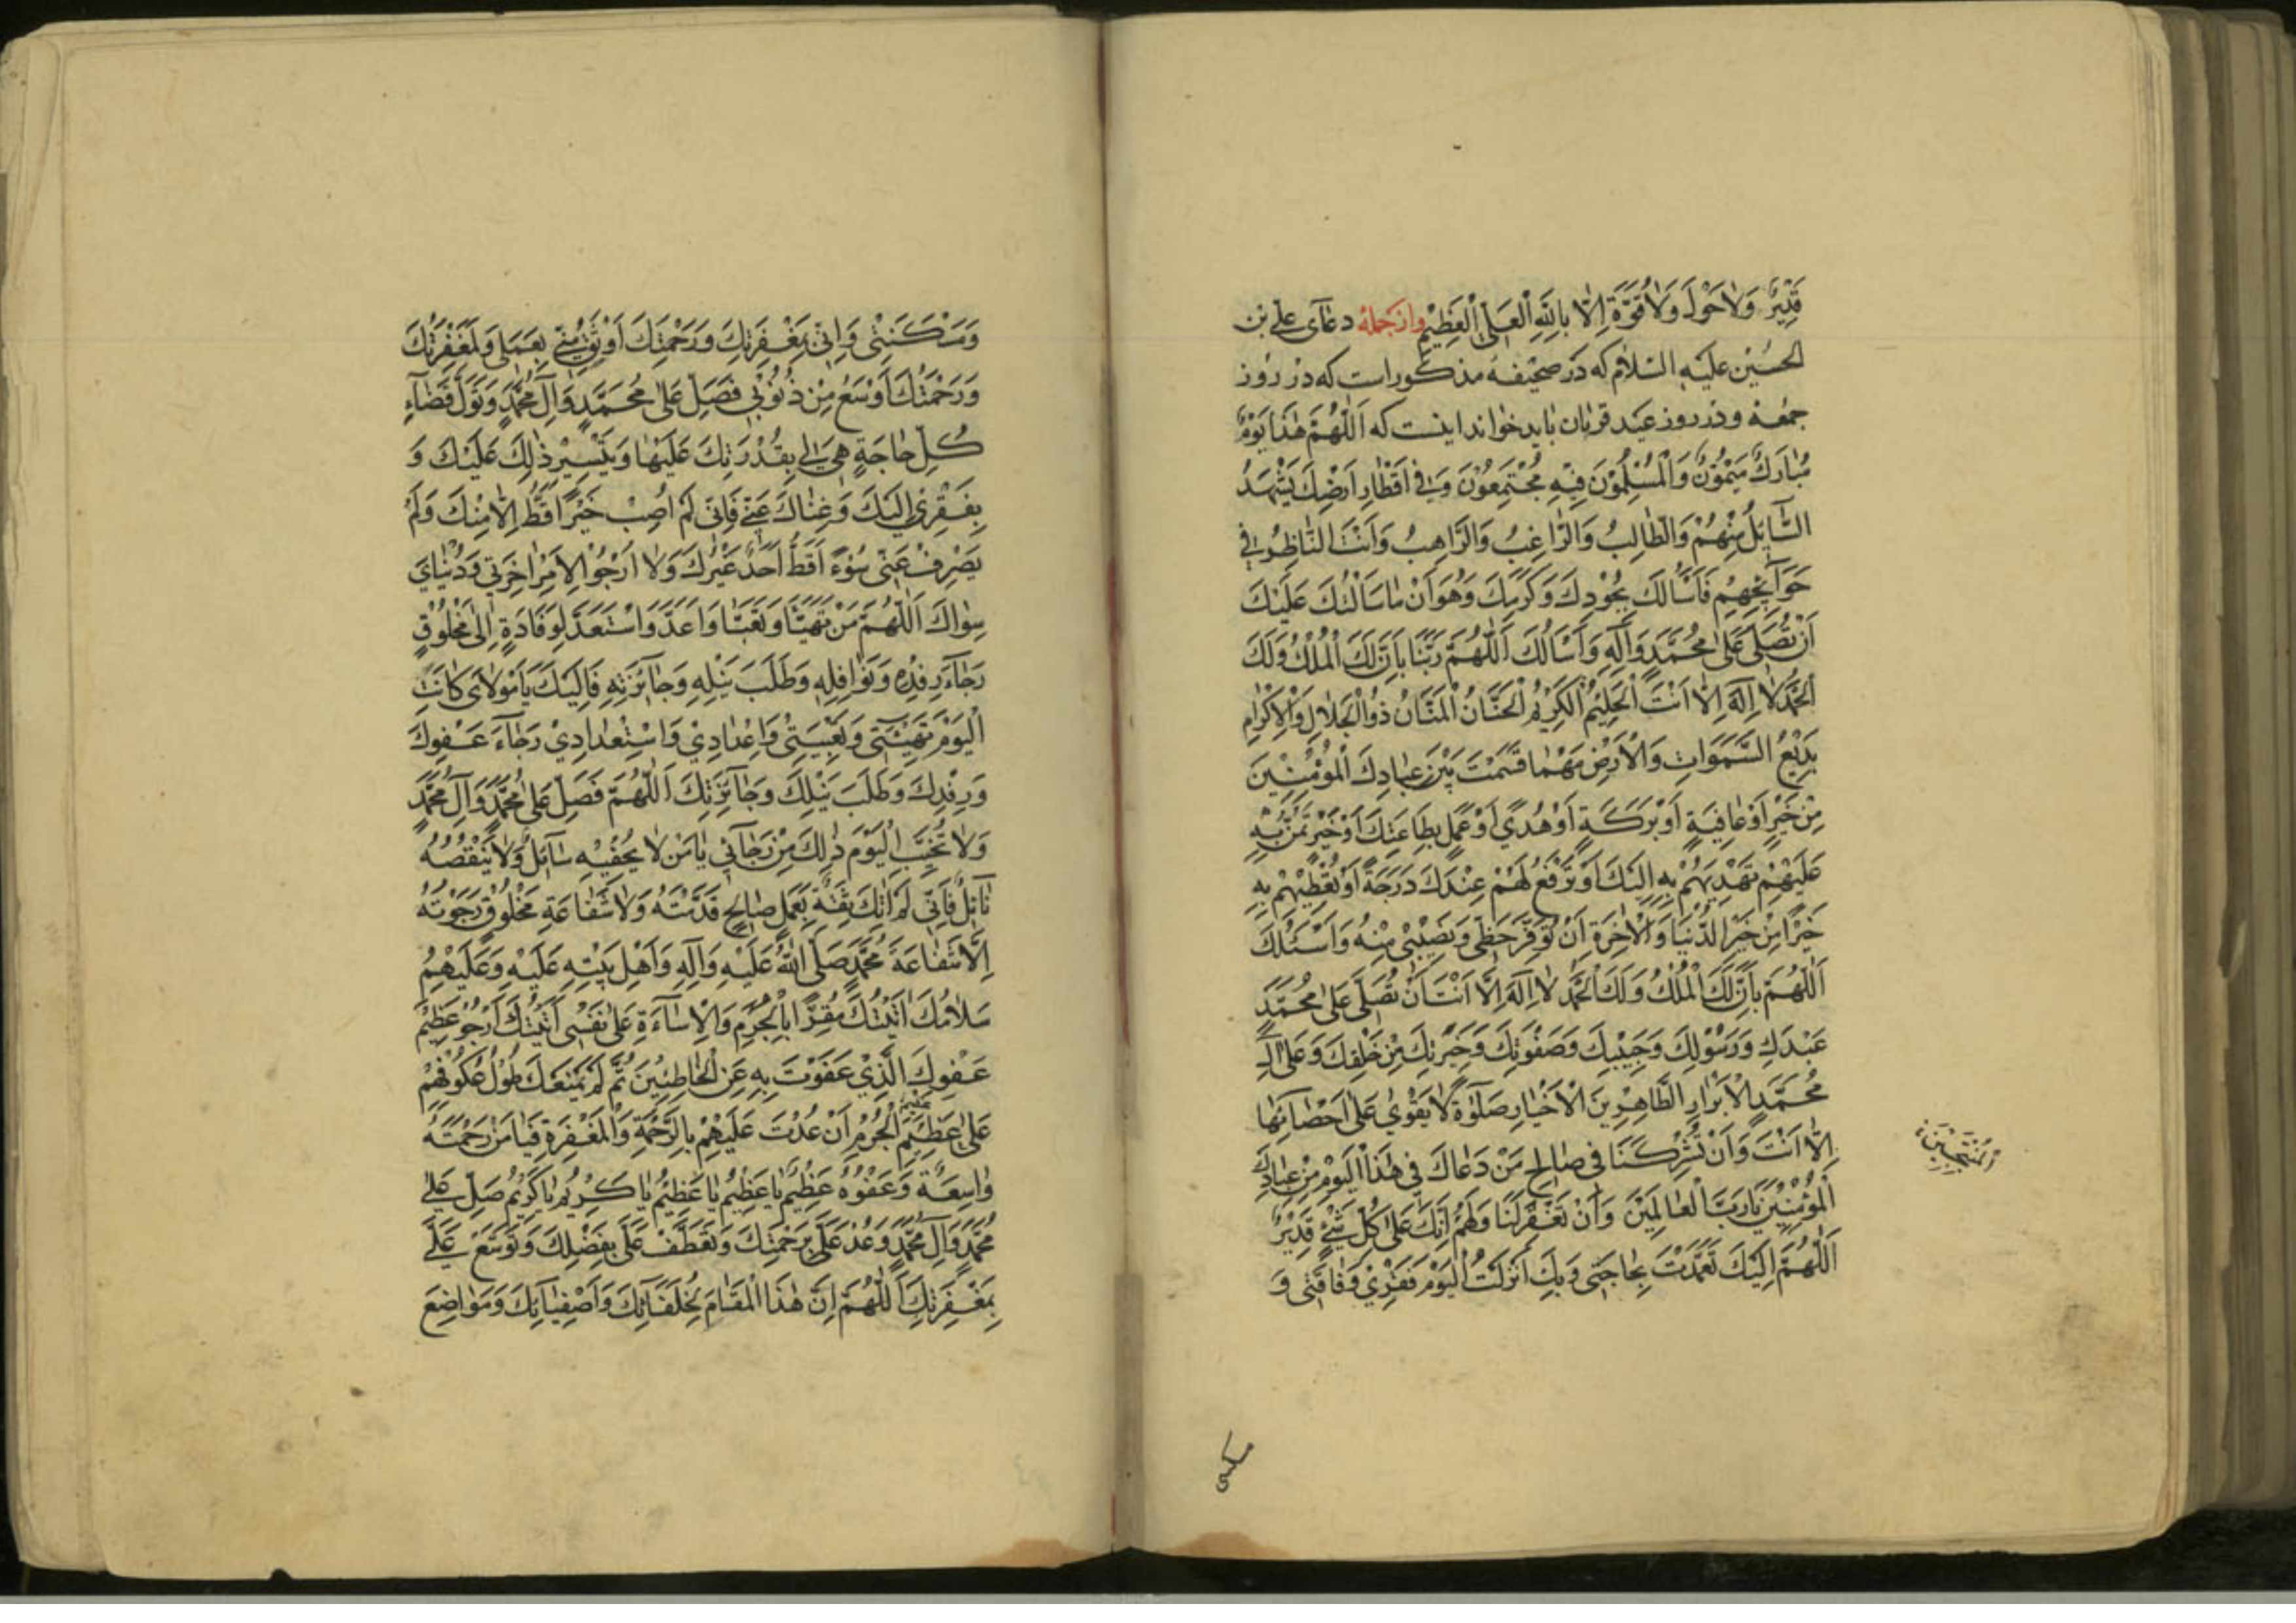 قَدِيرٌ وَلاٰحَوْلَ وَلاٰقُوَّةَ اِلاّٰ بِاللهِ الْعَلِىِّ الْعَظِيْمِ وازجمله دعآى على بن
الحسين عليه السلام كه در صحيفه مذكوراست كه در روز
جمعه و در روز عيد قربان بايد خواند اينست كه اَللّٰهُمَّ هٰذَا يَوْمٌ
مُبٰارَكٌ مَيْمُوْنٌ وَالْمُسْلِمُوْنَ فِيْهِ مُجْتَمِعُوْنَ فِىْ اَقْطٰارِ اَرْضِكَ يَشْهَدُ
السَّآئِلُ مِنْهُمْ وَالطّٰالِبُ وَالرّٰاغِبُ وَالرّٰاهِبُ وَاَنْتَ النّٰاظِرُ فِى
حَوَآئِجِهِمْ فَاَسْاَلُكَ بِجُوْدِكَ وَكَرَمِكَ وَهَوَاٰنِ مٰا سَاَلْتُكَ عَلَيْكَ
اَنْ تُصَلِّىَ عَلىٰ مُحَمَّدٍ وَآلِهِ وَاَسْاَلُكَ اَللّٰهُمَّ رَبَّنٰا بِاَنَّ لَكَ الْمُلْكَ وَلَكَ
الْحَمْدُ لاٰ اِلٰهَ اِلاّٰ اَنْتَ الْحَلِيْمُ الْكَرِيْمُ الْحَنَّانُ الْمَنَّانُ ذُوالْجَلاٰلِ وَالْاِكْرٰامِ
بَدِيْعُ السَّمَوٰاتِ وَالْاَرْضِ مَهْمٰا قَسَمْتَ بَيْنَ عِبٰادِكَ الْمُؤْمِنِيْنَ
مِنْ خَيْرٍ اَوْ عٰافِيَةٍ اَوْ بَرَكَةٍ اَوْ هُدًى اَوْ عَمَلٍ بِطٰاعَتِكَ اَوْ خَيْرٍ تَمُنُّ بِهِ
عَلَيْهِمْ تَهْدِيْهِمْ بِهِ اِلَيْكَ اَوْ تَرْفَعُ لَهُمْ عِنْدَكَ دَرَجَةً اَوْ تُعْطِيْهِمْ بِهِ
خَيْرًا مِنْ خَيْرِ الدُّنْيٰا وَالْاٰخِرَةِ اَنْ تُوَفِّرَ حَظِّى وَنَصِيْبِىْ مِنْهُ وَاَسْئَلُكَ
اَللّٰهُمَّ بِاَنَّ لَكَ الْمُلْكَ وَلَكَ الْحَمْدَ لاٰ اِلٰهَ اِلاّٰ اَنْتَ اَنْ تُصَلِّىَ عَلىٰ مُحَمَّدٍ
عَبْدِكَ وَرَسُوْلِكَ وَحَبِيْبِكَ وَصَفْوَتِكَ وَخِيَرَتِكَ مِنْ خَلْقِكَ وَعَلىٰ آلِ
مُحَمَّدٍ الْاَبْرٰارِ الطَّاهِرِيْنَ الْاَخْيٰارِ صَلَوٰةً لاٰ يَقْوٰى عَلىٰ اِحْصٰائِهٰا
اِلاّٰ اَنْتَ وَاَنْ تُشْرِكَنٰا فِى صٰالِحِ مَنْ دَعٰاكَ فِى هٰذَا الْيَوْمِ مِنْ عِبٰادِكَ
الْمُؤْمِنِيْنَ يٰا رَبَّ الْعٰالَمِيْنَ وَاَنْ تَغْفِرَ لَنٰا وَلَهُمْ اِنَّكَ عَلىٰ كُلِّ شَىْءٍ قَدِيْرٌ
اَللّٰهُمَّ اِلَيْكَ تَعَمَّدْتُ بِحٰاجَتِى وَبِكَ اَنْزَلْتُ الْيَوْمَ فَقْرِىْ وَفٰاقَتِى وَ
المُنْتَجَبِيْنَ
مسكنتى
وَمَسْكَنَتِىْ وَاِنِّى بِمَغْفِرَتِكَ وَرَحْمَتِكَ اَوْثَقُ مِنِّى بِعَمَلِى وَلَمَغْفِرَتُكَ
وَرَحْمَتُكَ اَوْسَعُ مِنْ ذُنُوْبِى فَصَلِّ عَلىٰ مُحَمَّدٍ وَآلِ مُحَمَّدٍ وَتَوَلَّ قَضٰآءَ
كُلِّ حٰاجَةٍ هِىَ لِى بِقُدْرَتِكَ عَلَيْهٰا وَتَيْسِيْرِ ذٰلِكَ عَلَيْكَ وَ
بِفَقْرِىْ اِلَيْكَ وَغِنٰاكَ عَنِّى فَاِنِّى لَمْ اُصِبْ خَيْرًا قَطُّ اِلاّٰ مِنْكَ وَلَمْ
يَصْرِفْ عَنِّى سُوْءً قَطُّ اَحَدٌ غَيْرُكَ وَلاٰ اَرْجُوْ لِاَمْرِ اٰخِرَتِى وَدُنْيٰاىَ
سِوٰاكَ اَللّٰهُمَّ مَنْ تَهَيَّأَ وَتَعَبَّأَ وَاَعَدَّ وَاسْتَعَدَّ لِوِفٰادَةٍ اِلىٰ مَخْلُوْقٍ
رَجٰآءَ رِفْدِهِ وَنَوٰافِلِهِ وَطَلَبَ نَيْلِهِ وَجٰآئِزَتِهِ فَاِلَيْكَ يٰا مَوْلاٰىَ كٰانَتِ
الْيَوْمَ تَهْيِئَتِى وَتَعْبِيَتِىْ وَاِعْدٰادِىْ وَاسْتِعْدٰادِىْ رَجٰآءَ عَفْوِكَ
وَرِفْدِكَ وَطَلَبَ نَيْلِكَ وَجٰآئِزَتِكَ اَللّٰهُمَّ فَصَلِّ عَلىٰ مُحَمَّدٍ وَآلِ مُحَمَّدٍ
وَلاٰ تُخَيِّبِ الْيَوْمَ ذٰلِكَ مِنْ رَجٰآئِى يٰا مَنْ لاٰ يُحْفِيْهِ سٰآئِلٌ وَلاٰ يَنْقُصُهُ
نٰآئِلٌ فَاِنِّى لَمْ اٰتِكَ ثِقَةً بِعَمَلٍ صٰالِحٍ قَدَّمْتُهُ وَلاٰ شَفٰاعَةِ مَخْلُوْقٍ رَجَوْتُهُ
اِلاَّ شَفٰاعَةَ مُحَمَّدٍ صَلَّى اللهُ عَلَيْهِ وَآلِهِ وَاَهْلِ بَيْتِهِ عَلَيْهِ وَعَلَيْهِمْ
سَلاٰمُكَ اَتَيْتُكَ مُقِرًّا بِالْجُرْمِ وَالْاِسٰآءَةِ عَلىٰ نَفْسِى اَتَيْتُكَ اَرْجُوْ عَظِيْمَ
عَفْوِكَ الَّذِىْ عَفَوْتَ بِهِ عَنِ الْخٰاطِئِيْنَ ثُمَّ لَمْ يَمْنَعْكَ طُوْلُ عُكُوْفِهِمْ
عَلىٰ عَظِيْمِ الْجُرْمِ اَنْ عُدْتَ عَلَيْهِمْ بِالرَّحْمَةِ وَالْمَغْفِرَةِ فَيٰا مَنْ رَحْمَتُهُ
وٰاسِعَةٌ وَعَفْوُهُ عَظِيْمٌ يٰا عَظِيْمُ يٰا عَظِيْمُ يٰا كَرِيْمُ يٰا كَرِيْمُ صَلِّ عَلىٰ
مُحَمَّدٍ وَآلِ مُحَمَّدٍ وَعُدْ عَلَىَّ بِرَحْمَتِكَ وَتَعَطَّفْ عَلَىَّ بِفَضْلِكَ وَتَوَسَّعْ عَلَىَّ
بِمَغْفِرَتِكَ اَللّٰهُمَّ اِنَّ هٰذَا الْمَقٰامَ لِخُلَفَآئِكَ وَاَصْفِيٰآئِكَ وَمَوٰاضِعَ